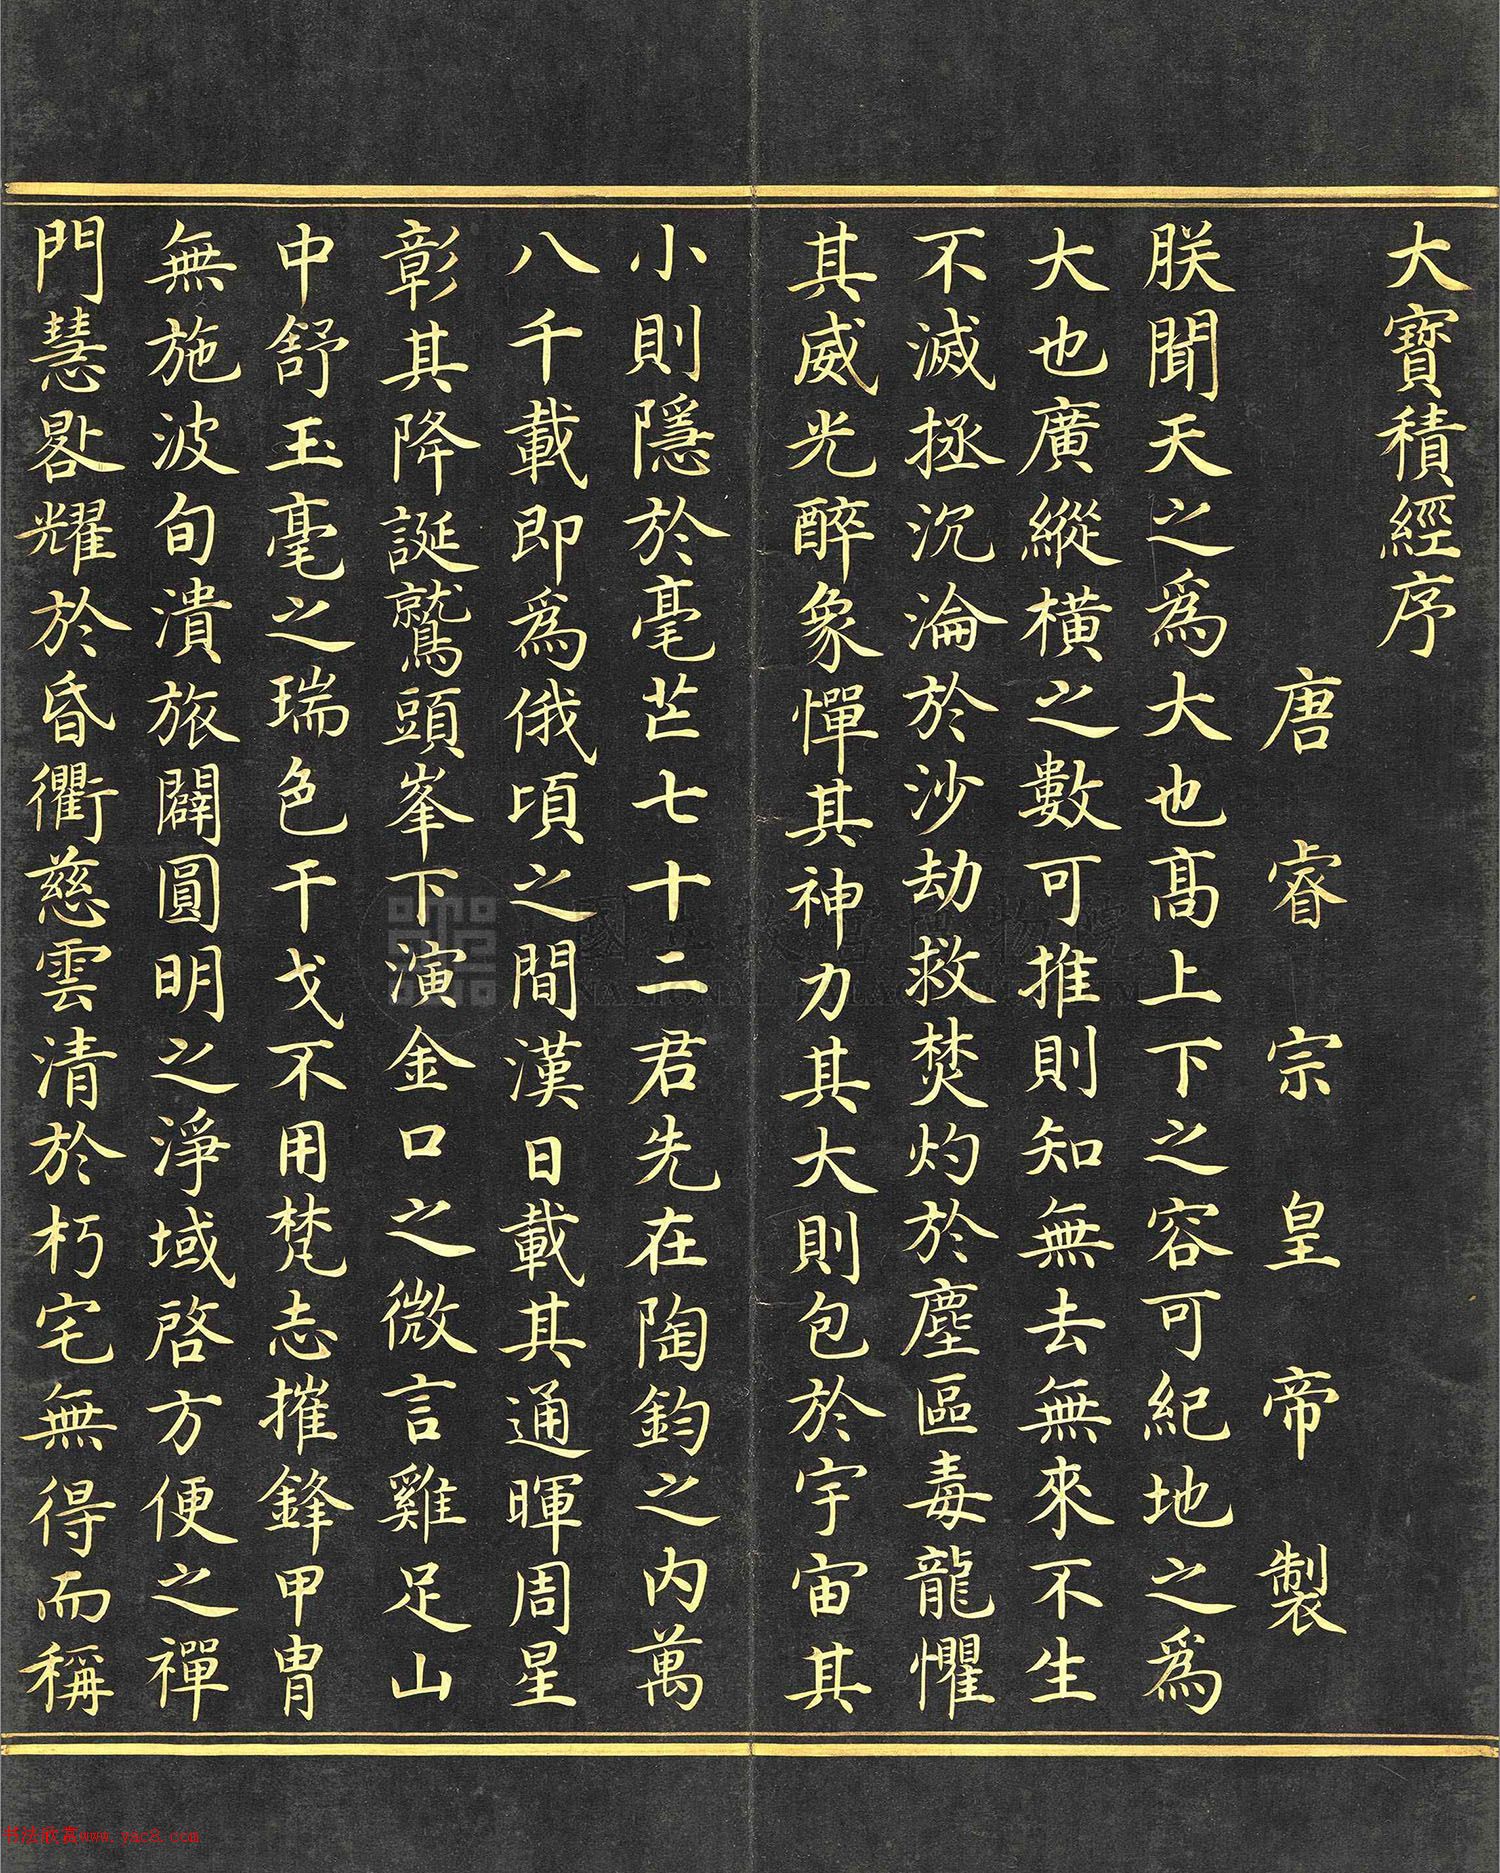 大寶積經序
唐睿宗皇帝製
朕聞天之爲大也髙上下之容可紀地之爲
大也廣縱橫之數可推則知無去無來不生
不滅拯沉淪於沙劫救焚灼於塵區毒龍懼
其威光醉象憚其神力其大則包於宇宙其
小則隱於毫芒七十二君先在陶鈞之内萬
八千載即爲俄頃之間漢日載其通暉周星
彰其降誕鷲頭峯下演金口之微言雞足山
中舒玉毫之瑞色干戈不用梵志摧鋒甲冑
無施波旬潰旅闢圓明之淨域啓方便之禪
門慧晷耀於昏衢慈雲清於朽宅無得而稱
NATIONAL PALACE MUSEUM
书法欣赏www.yac8.com